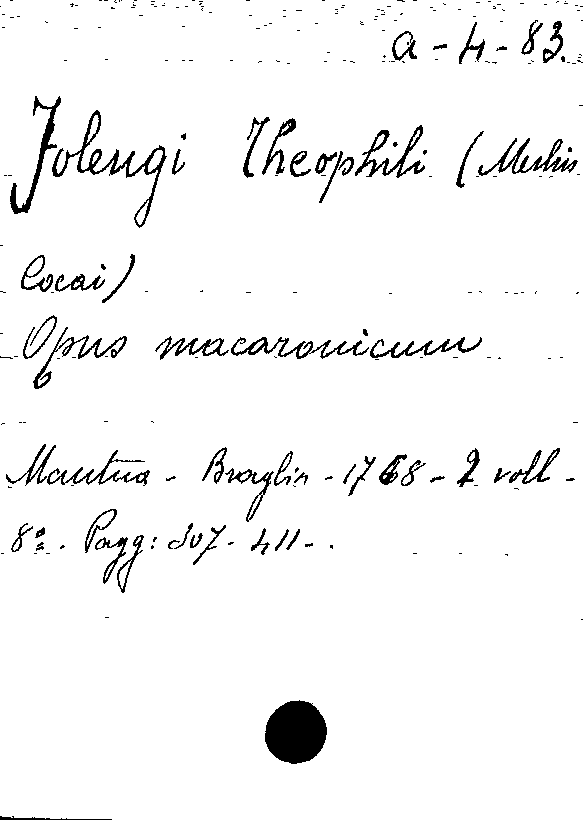 a - 4 - 83.
Folengi Theophili (Merlin
Cocai)
Opus macaronicum
Mantua - Braglia - 1768 - 2 voll -
8º. Pagg: 307 - 411 - .